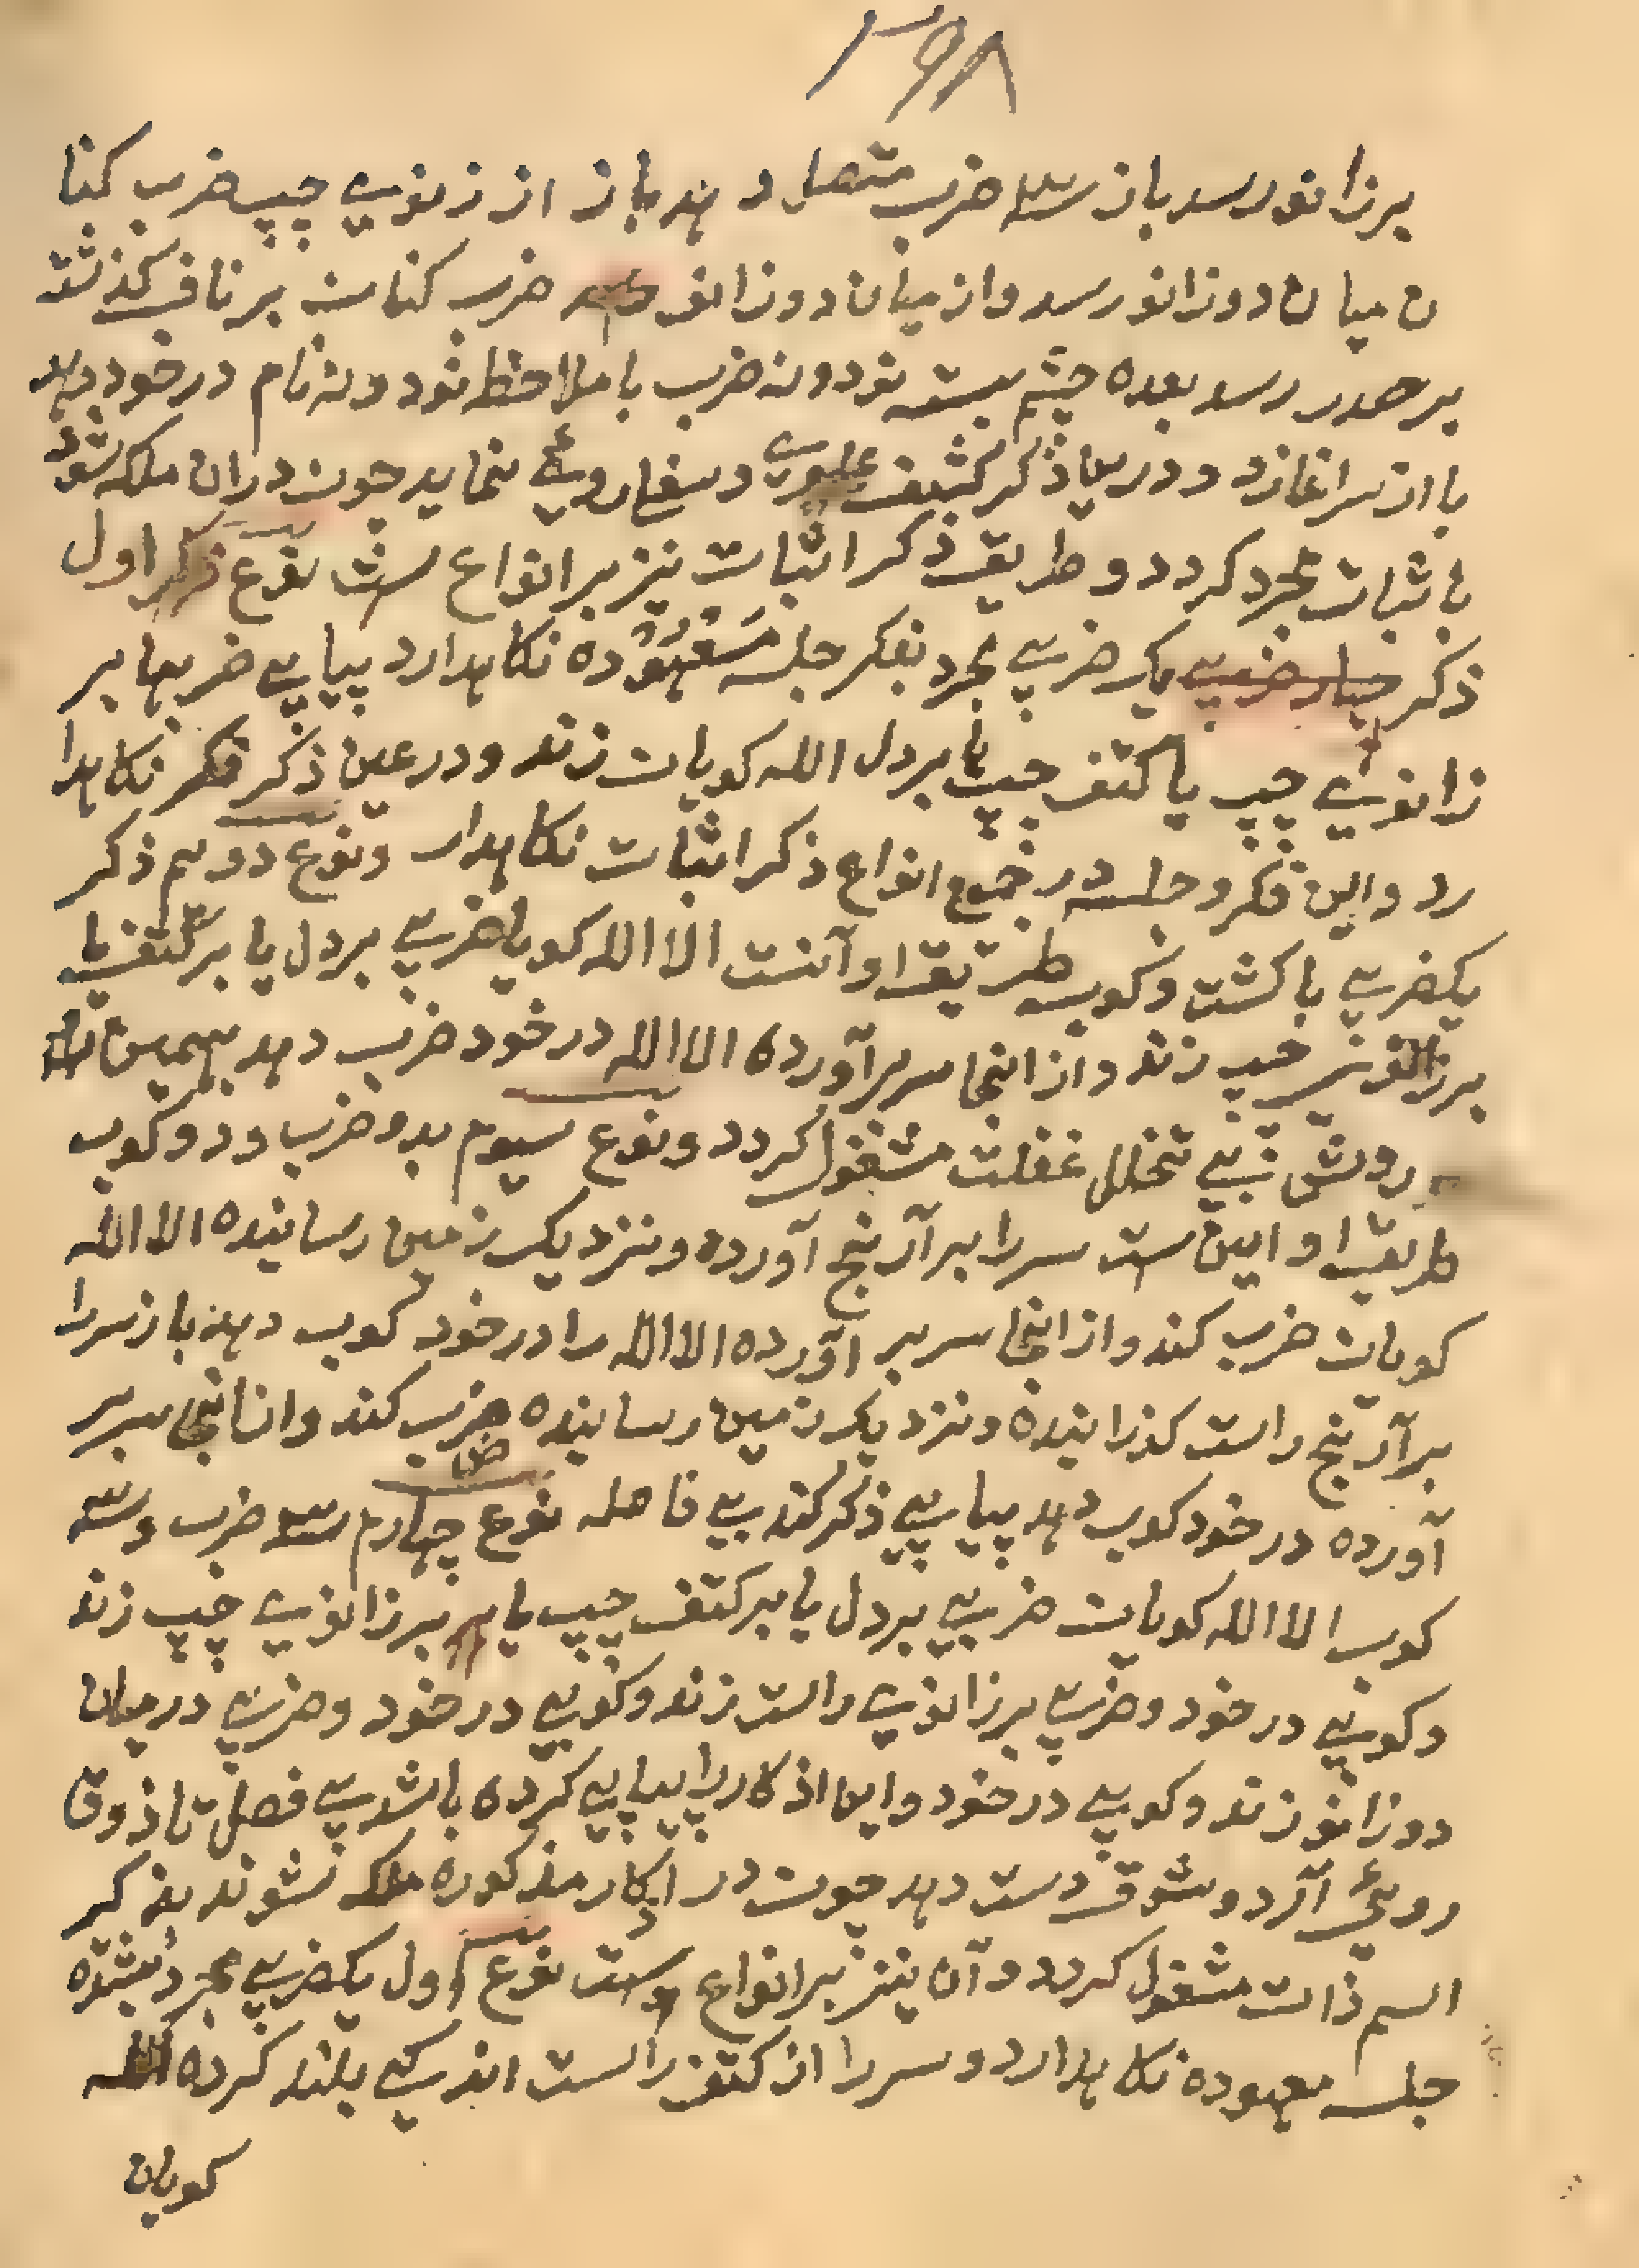 ۳۹۸
برزانو رسد باز سه ضرب متصل دهد باز از زنوی چپ ضرب کنا
ن میان دوزانو رسد و از میان دوزانو ضرب کنان بر ناف گذشته
بر صدر رسد بعده چشم بسته نودونه ضرب با ملاحظه نود و نه نام در خود دهد
باز از سر اغازد و درین ذکر کشف علوی و سفلی روی نماید چون در ان ملکه شود
باثبات مجرد کردد و طریق ذکر اثبات نیز بر انواع ست نوع اول
ذکر یک ضربی مجرد بفکر جلسه معهوده نکاهدارد پیاپی ضربها بر
زانوی چپ یا کتف چپ یا بر دل الله کویان زند و در عین ذکر فکر نکاهدا
رد و این فکر و جلسه در جمیع انواع ذکر اثبات نکاهدارد ونوع دوم ذکر
یکضربی با کشت و کوب طریق او آنست الا الله کویا ضربی بر دل یا بر کتف یا
برزانوی چپ زند و از انجا سر برآورده الا الله در خود ضرب دهد بهمین
روش بی تخلل غفلت مشغول کردد ونوع سیوم بدو ضرب و دو کوب
طریق او این ست سر را بر آرنج آورده و نزدیک زمین رسانیده الا الله
کویان ضرب کند و از انجا سر بر آورده الا الله را در خود کوب دهد باز سر را
بر آرنج راست کذرانیده و نزدیک زمین رسانیده ضرب کند و از انجا سر بر
آورده در خود کوب دهد پیاپی ذکر کند بی فاصله نوع چهارم سه ضرب و سه
کوب الا الله کویان ضربی بر دل یا بر کتف چپ یا برزانوی چپ زند
و کوبی در خود و ضربی برزانوی راست زند و کوبی در خود و ضربی در میان
دوزانو زند و کوبی در خود و این اذکار را پیاپی کرده باشد بی فصل تا ذوق
روی آرد و شوق دست دهد چون در اذکار مذکوره ملکه شوند بذکر
اسم ذات مشغول کردد و آن نیز بر انواع ست نوع اول یکضربی مجرد
جلسه معهوده نکاهدارد و سر را از کتف راست اندکی بلند کرده الله
کویان